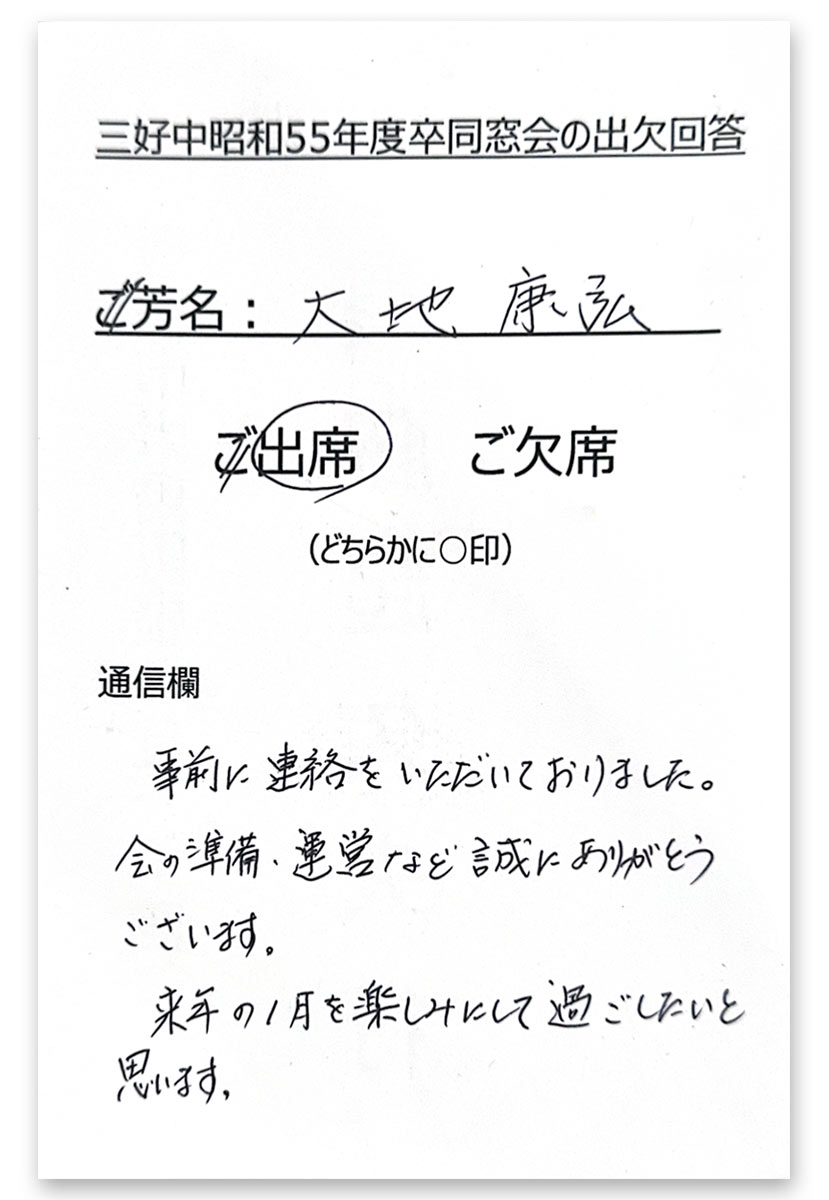 三好中昭和55年度卒同窓会の出欠回答
ご芳名： 大地 康弘
ご出席 ご欠席
（どちらかに○印）
通信欄
事前に連絡をいただいておりました。
会の準備、運営など誠にありがとう
ございます。
来年の1月を楽しみにして過ごしたいと
思います。